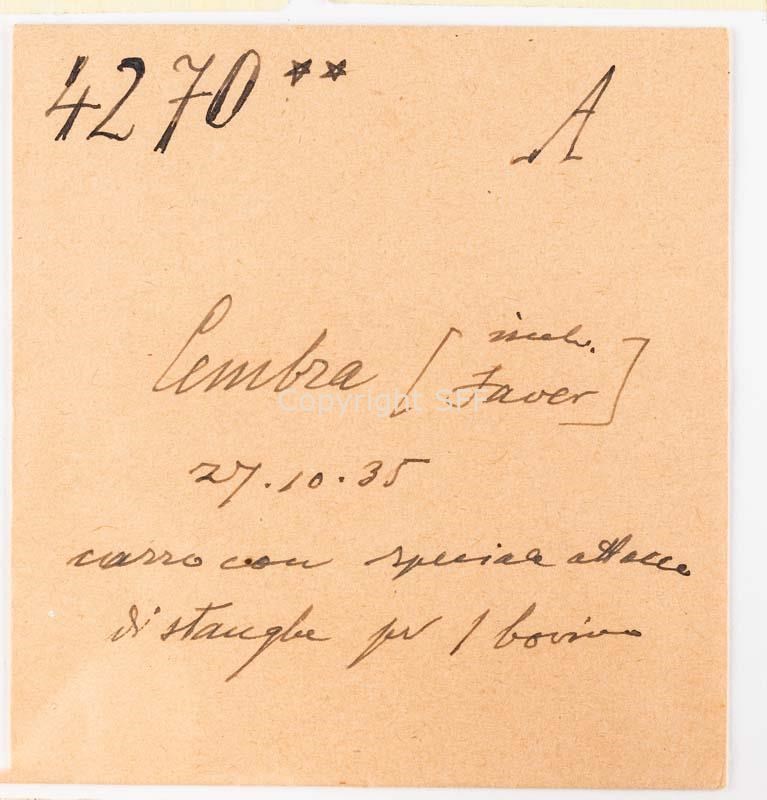 4270** A
Cembra [ Faver ]
27.10.35
carro con speciale attacco
di stanghe per 1 bovino
Copyright SFF